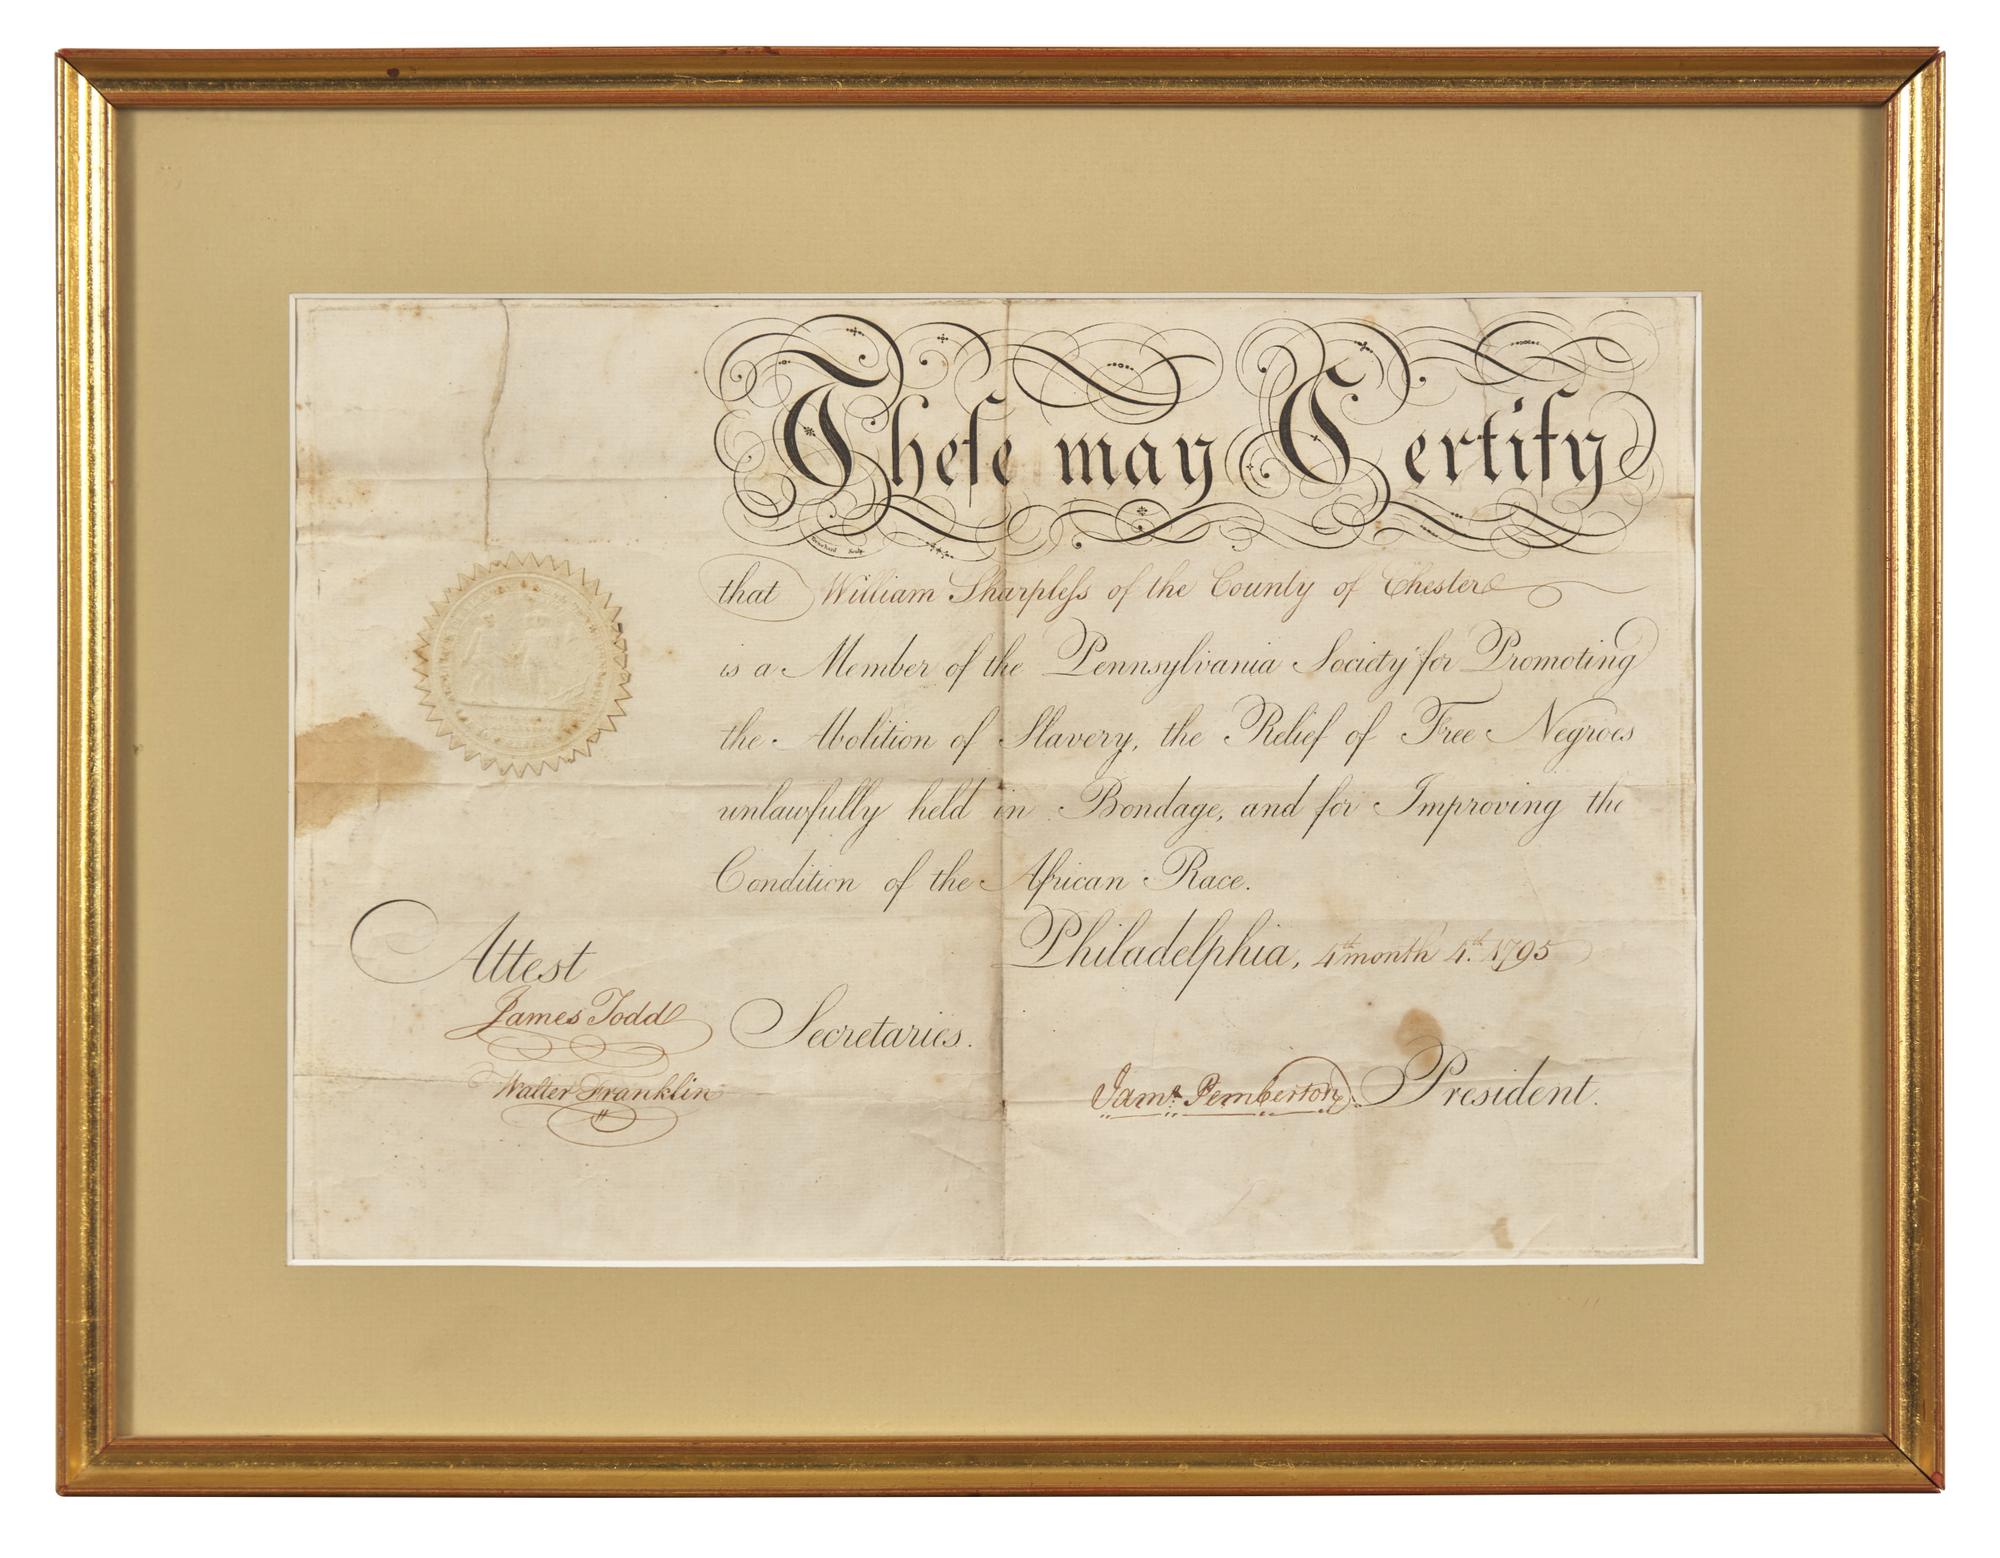 Theſe may Certify
that William Sharpleſs of the County of Chester
is a Member of the Pennsylvania Society for Promoting
the Abolition of Slavery, the Relief of Free Negroes
unlawfully held in Bondage, and for Improving the
Condition of the African Race.
Philadelphia, 4th month 4th. 1795
Attest
James Todd
Secretaries.
Walter Franklin
Jams. Pemberton President.